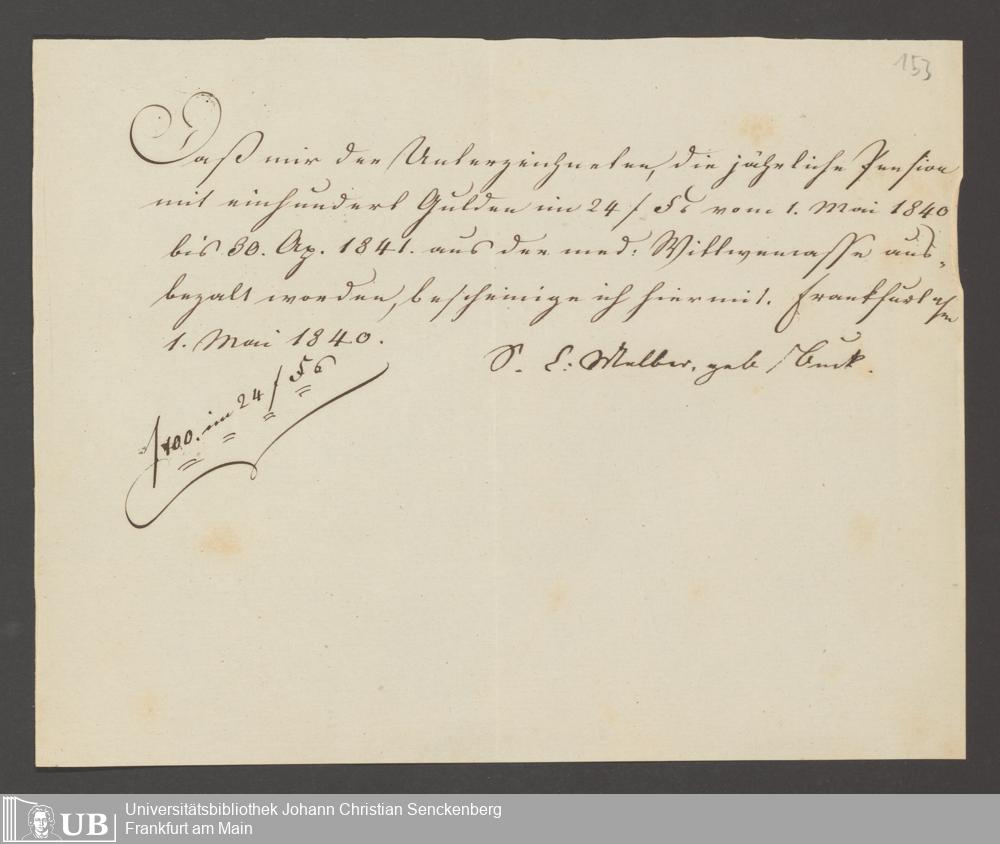 153
Daß mir der Unterzeichneten, die jährliche Pension
mit einhundert Gulden im 24 f Fs vom 1. Mai 1840
bis 30. Ap. 1841. aus der med: Wittwencasse aus-
bezalt worden, bescheinige ich hiermit. Frankfurt
1. Mai 1840.
S. E: Melber, geb Buck.
f 100. im 24 f Fs
UB
Universitätsbibliothek Johann Christian Senckenberg
Frankfurt am Main